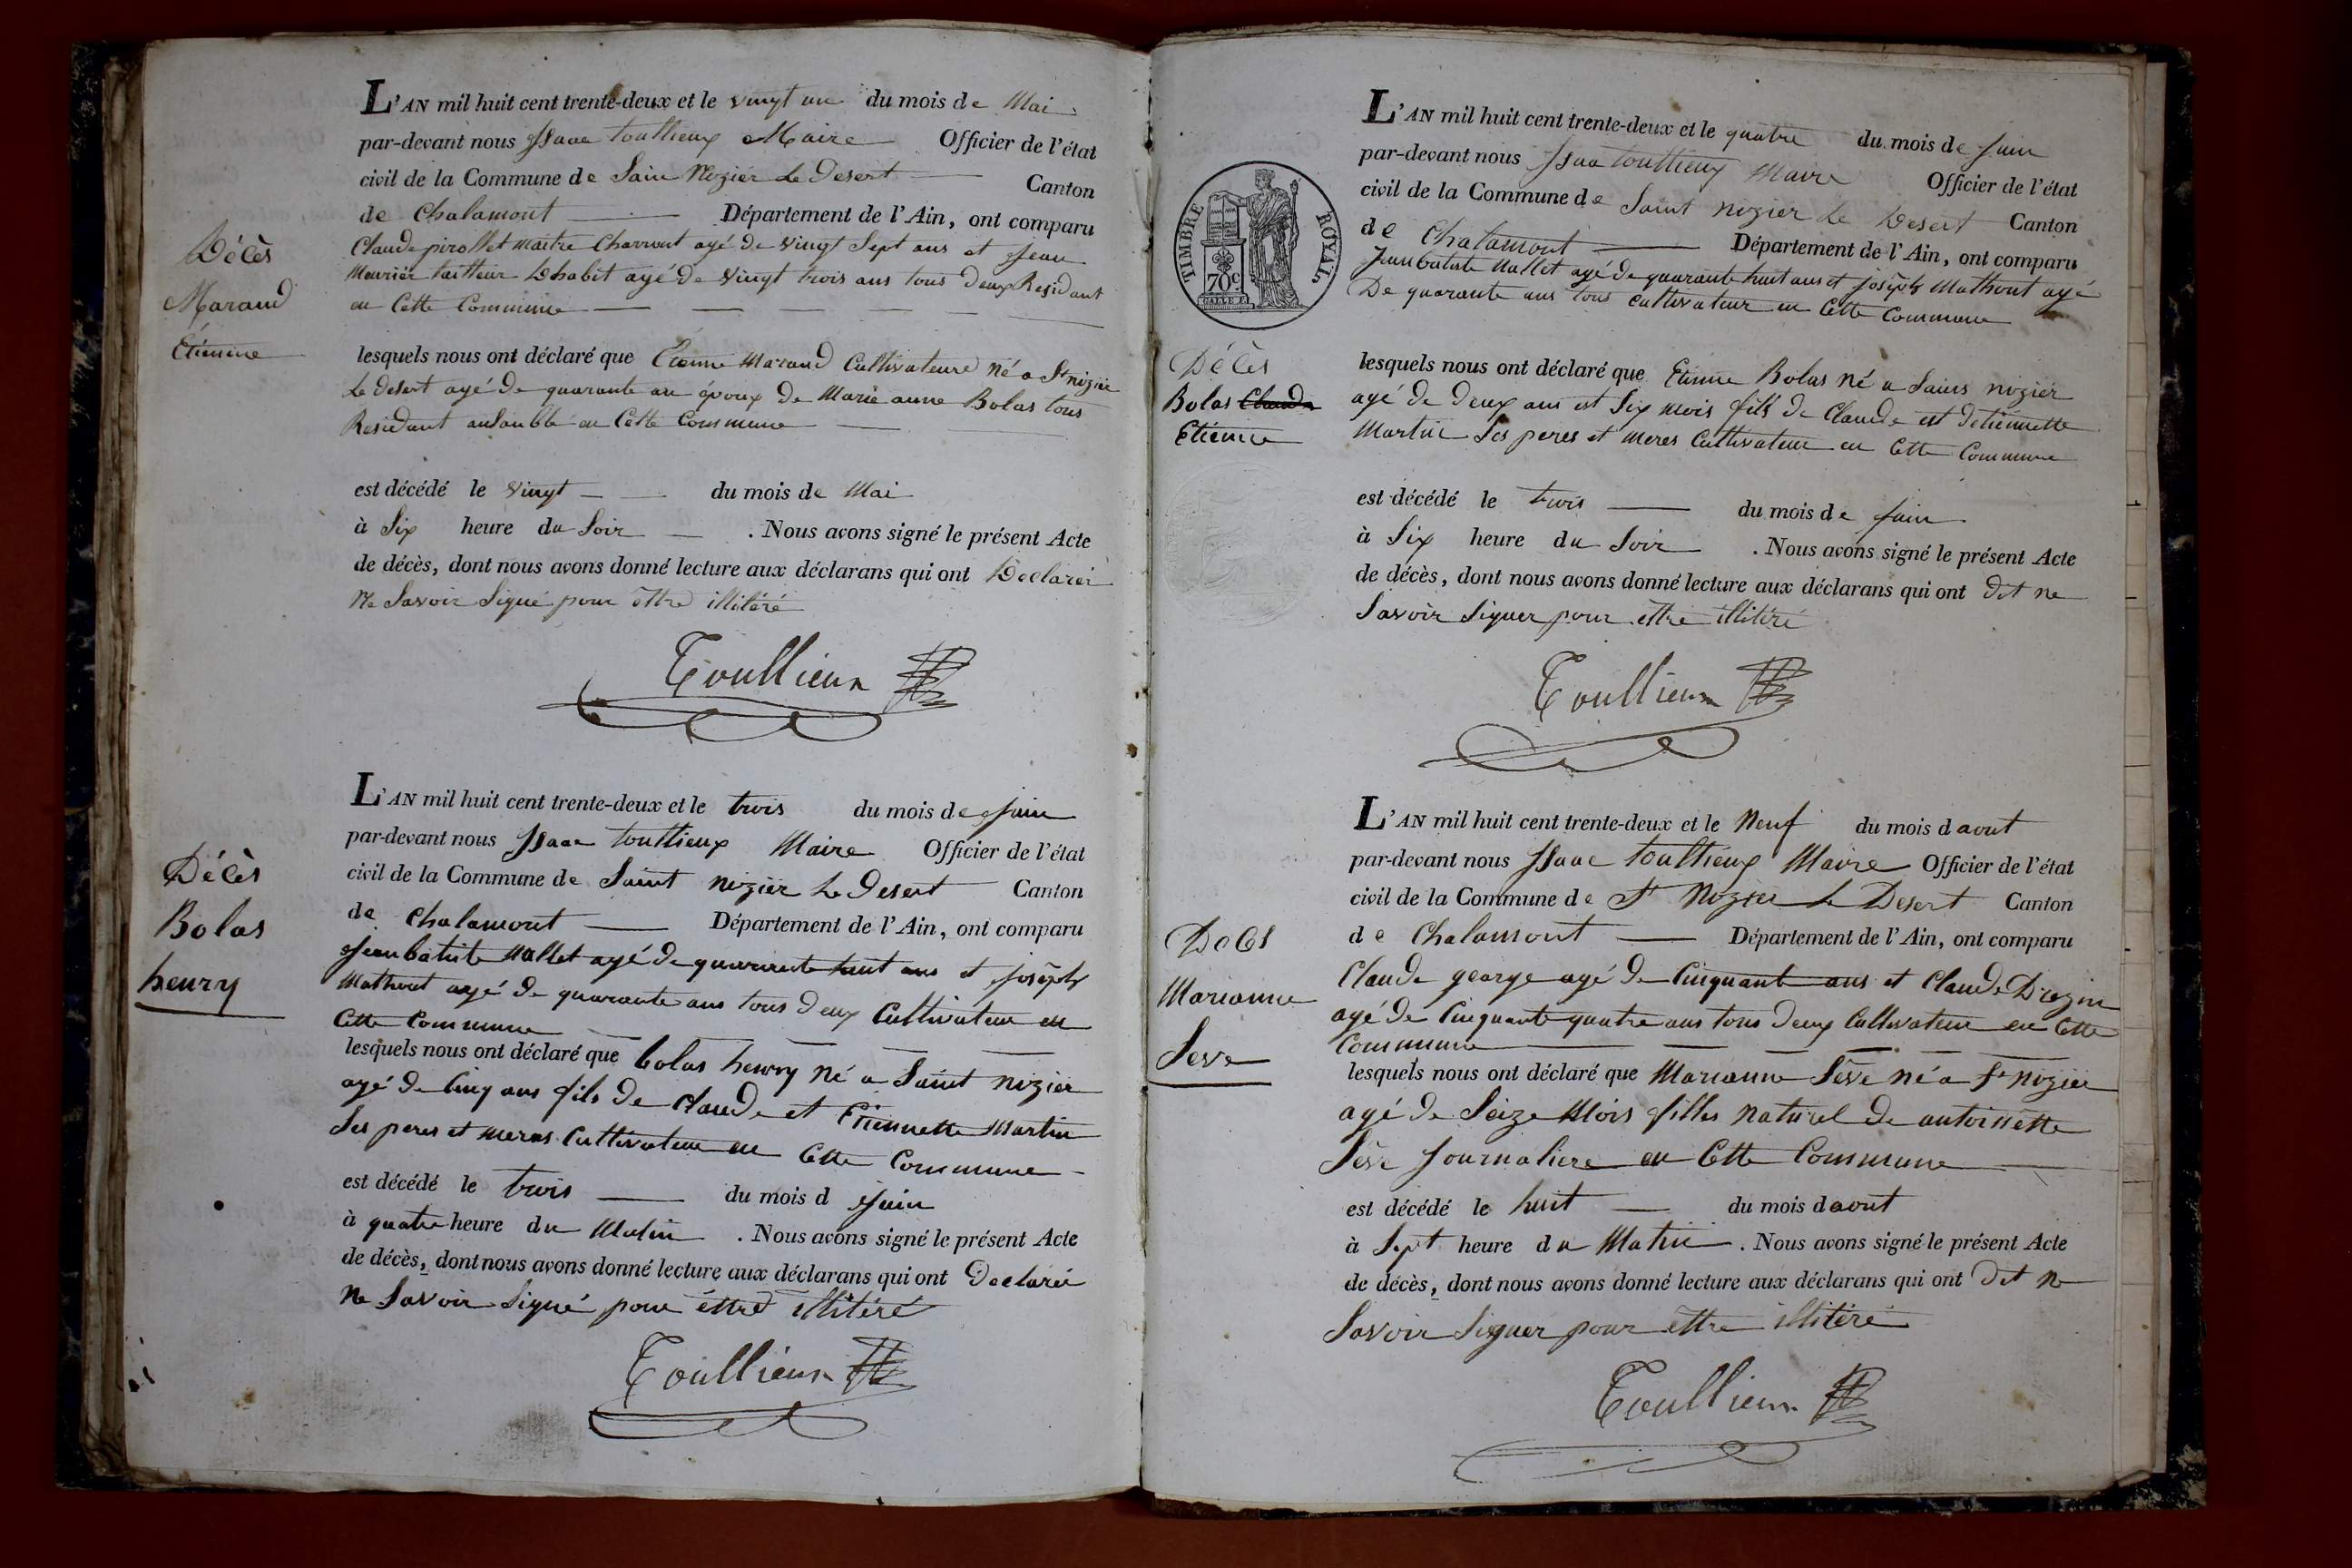 L'AN mil huit cent trente-deux et le vingt un du mois de Mai
par-devant nous Isaac touttieux Maire Officier de l'état
civil de la Commune de Sain Nizier Le Desert Canton
de Chalamont Département de l'Ain, ont comparu
Claude pirollet maitre Charront agé de vingt Sept ans et Jean
Meurier tailleur Dhabit agé de vingt trois ans tous deux Residant
en Cette Commune
Décès
Maraud
Étienne
lesquels nous ont déclaré que Étienne Maraud Cultivateure né a St nizier
Le desert agé de quarante an époux de Marie anne Bolas tous
Residant ansanble en Cette Commune
est décédé le vingt du mois de Mai
à Six heure du Soir . Nous avons signé le présent Acte
de décès, dont nous avons donné lecture aux déclarans qui ont Declarer
Ne Savoir Signé pour ettre illitéré
Toullieux
L'AN mil huit cent trente-deux et le trois du mois de Juin
par-devant nous Isaac touttieux Maire Officier de l'état
civil de la Commune de Saint nizier Le Desert Canton
de Chalamont Département de l'Ain, ont comparu
Jean batiste Mallet agé de quarante huit ans et joseph
Mathout agé de quarante ans tous deux Cultivateur en
Cette Commune
Décès
Bolas
henry
lesquels nous ont déclaré que bolas henry né a Saint nizier
agé de Cinq ans fils de Claude et Etiennette Martin
Ses peres et meres Cultivateur en Cette Commune
est décédé le trois du mois d Juin
à quatre heure du Matin . Nous avons signé le présent Acte
de décès, dont nous avons donné lecture aux déclarans qui ont Declarér
Ne Savoir Signé pour éttre illitéré
Toullieux
L'AN mil huit cent trente-deux et le quatre du mois de Juin
par-devant nous Isaac touttieux Maire Officier de l'état
civil de la Commune de Saint nizier Le Desert Canton
de Chalamont Département de l'Ain, ont comparu
Jean batiste Mallet agé de quarante huit ans et joseph Mathout agé
De quarante ans tous cultivateur en Cette Commune
TIMBRE ROYAL
70c
Décès
Bolas Claude
Etienne
lesquels nous ont déclaré que Etienne Bolas né a Sains nizier
agé de deux ans est Six mois fils de Claude est detiennette
Martin Ses peres et meres Cultivateur en Cette Commune
est décédé le trois du mois de Juin
à Six heure du Soir . Nous avons signé le présent Acte
de décès, dont nous avons donné lecture aux déclarans qui ont dit ne
Savoir Signer pour ettre illitéré
Toullieux
L'AN mil huit cent trente-deux et le Neuf du mois d aout
par-devant nous Isaac touttieux Maire Officier de l'état
civil de la Commune de St Nizier Le Desert Canton
de Chalamont Département de l'Ain, ont comparu
Claude george agé de Cinquant ans et Claude Drozin
agé de Cinquante quatre ans tous deux Cultivateur en Cette
Commune
Marianne
Seve
lesquels nous ont déclaré que Marianne Séve né a St nizier
agé de Seize Mois filles naturel de antoinette
Séve Journaliere en Cette Commune
est décédé le huit du mois d aout
à Sept heure du Matin . Nous avons signé le présent Acte
de décès, dont nous avons donné lecture aux déclarans qui ont dit ne
Savoir Signer pour ettre illitéré
Toullieux